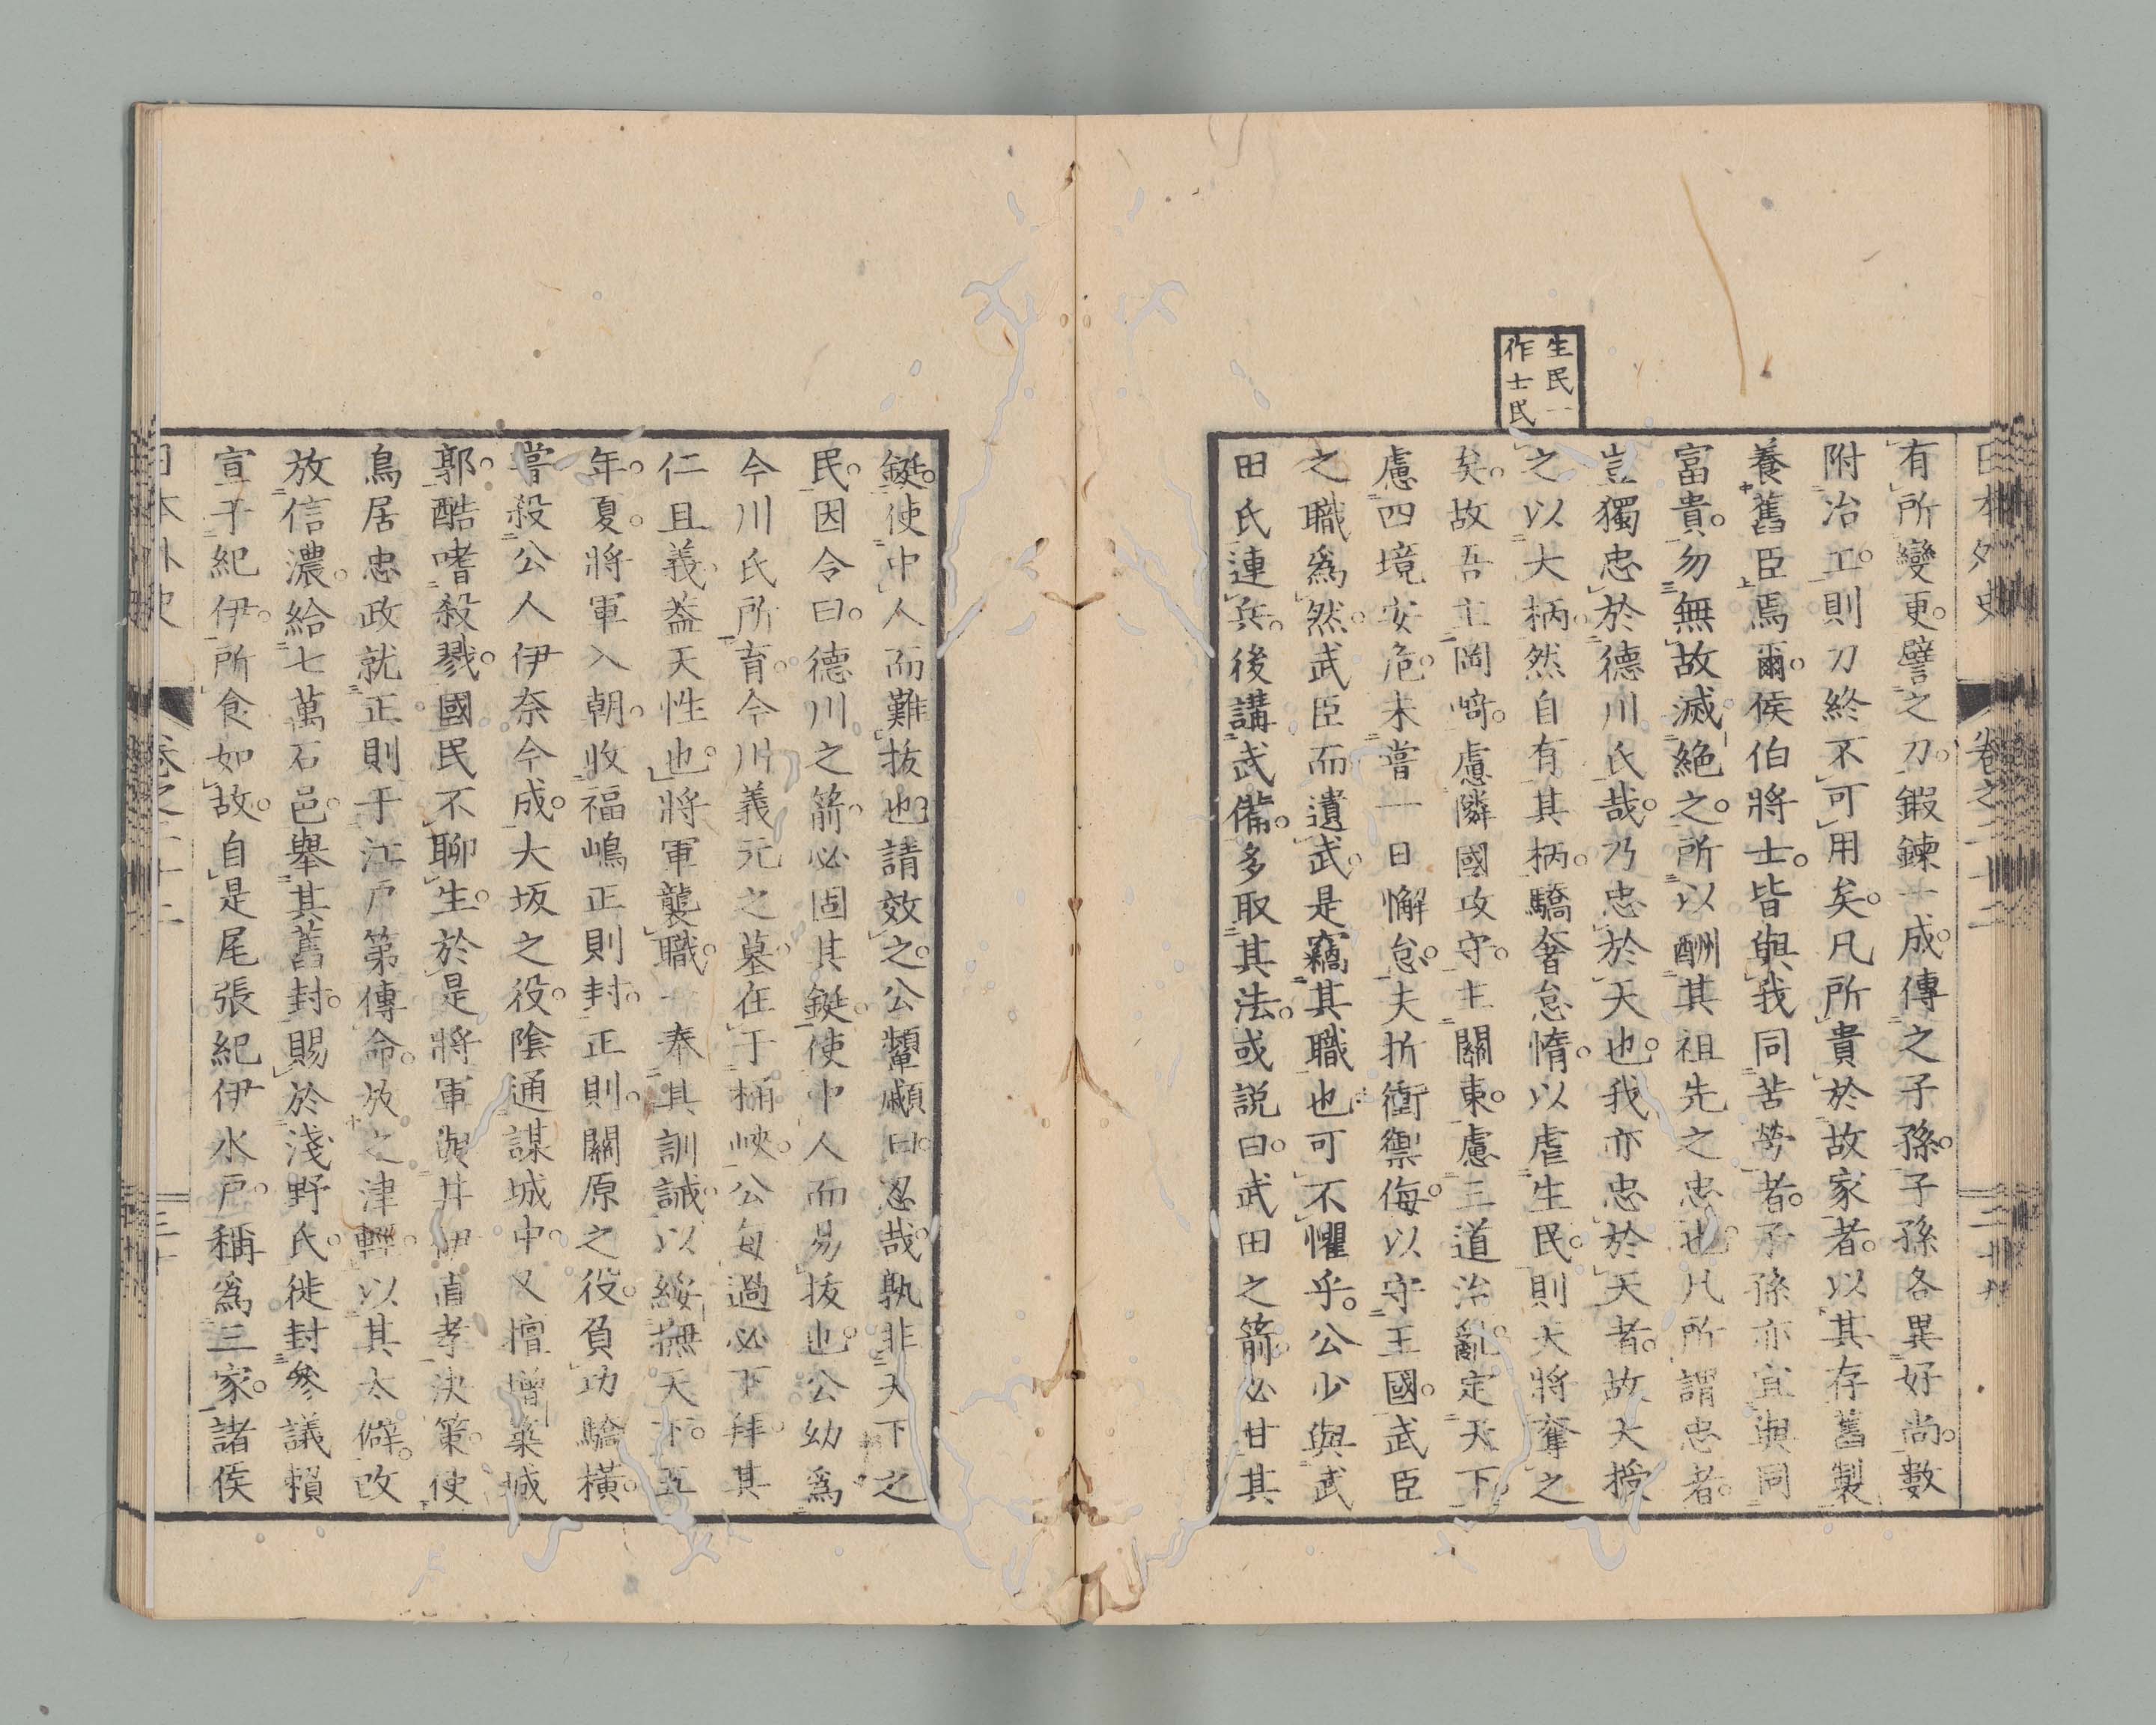 生民一
作士民
日本外史 卷之二十二
有所變更。譬之刀。鍜鍊一成。傳之子孫。子孫各異好尚。數
附冶工。則刀終不可用矣。凡所貴於故家者。以其存舊製
養舊臣焉爾。侯伯將士。皆與我同苦勞者。子孫亦宜與同
富貴。勿無故滅絕之。所以酬其祖先之忠也。凡所謂忠者。
豈獨忠於德川氏哉。乃忠於天也。我亦忠於天者。故天授
之以大柄。然自有其柄。驕奢怠惰。以虐生民。則天將奪之
矣。故吾主岡﨑。慮隣國攻守。主關東。慮三道治亂。定天下。
慮四境安危。未嘗一日懈怠。夫折衝禦侮。以守王國。武臣
之職爲然。武臣而遺武。是竊其職也。可不懼乎。公少與武
田氏連兵。後講武備。多取其法。或説曰。武田之箭。必甘其
鋌。使中人而難拔也。請效之。公顰顣曰。忍哉。孰非天下之
民。因令曰。德川之箭。必固其鋌。使中人而易拔也。公幼爲
今川氏所育。今川義元之墓。在于桶峽。公每過必下拜。其
仁且義。葢天性也。將軍襲職。一奉其訓誡。以綏撫天下。五
年。夏。將軍入朝。收福嶋正則封。正則。關原之役。負功驕橫。
嘗殺公人伊奈今成。大坂之役。陰通謀城中。又擅增築城
郭。酷嗜殺戮。國民不聊生。於是將軍與井伊直孝決策。使
鳥居忠政就正則于江戶第傳命。放之津輕。以其太僻。改
放信濃。給七萬石邑。舉其舊封。賜於淺野氏。徙封參議賴
宣于紀伊。所食如故。自是尾張紀伊水戶。稱爲三家。諸侯